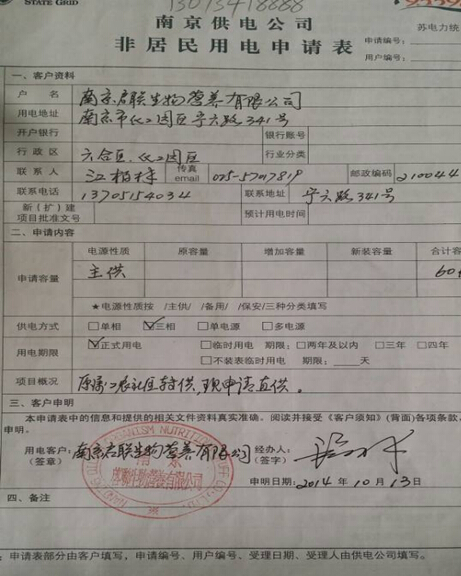 STATE GRID
13013418888
南京供电公司
非居民用电申请表
苏电力统
申请编号:
用户编号:
一、客户资料
户 名 南京君联生物营养有限公司
用电地址 南京市化工园区宁六路341号
开户银行 银行账号
行政区 六合区、化工园区 行业分类
联系人 江 传真 email 025-57017819 邮政编码 210044
联系电话 13705154034 联系地址 宁六路341号
新(扩)建项目批准文号 预计用电时间
二、申请内容
电源性质 原容量 增加容量 新装容量 合计容
申请容量 主供
★电源性质按 /主供/ /备用/ /保安/三种分类填写
供电方式 □单相 ☑三相 □单电源 □多电源
用电期限 ☑正式用电 □临时用电 期限:□两年及以内 □三年 □四年
□不装表临时用电 期限:____天
项目概况 转供,现申请直供。
三、客户申明
本申请表中的信息和提供的相关文件资料真实准确。阅读并接受《客户须知》(背面)各项条款,
申明。
用电客户:南京君联生物营养有限公司 经办人:
(签章) (签字)
申明日期:2014年10月13日
四、备注
:申请表部分由客户填写,申请编号、用户编号、受理日期、受理人由供电公司填写。